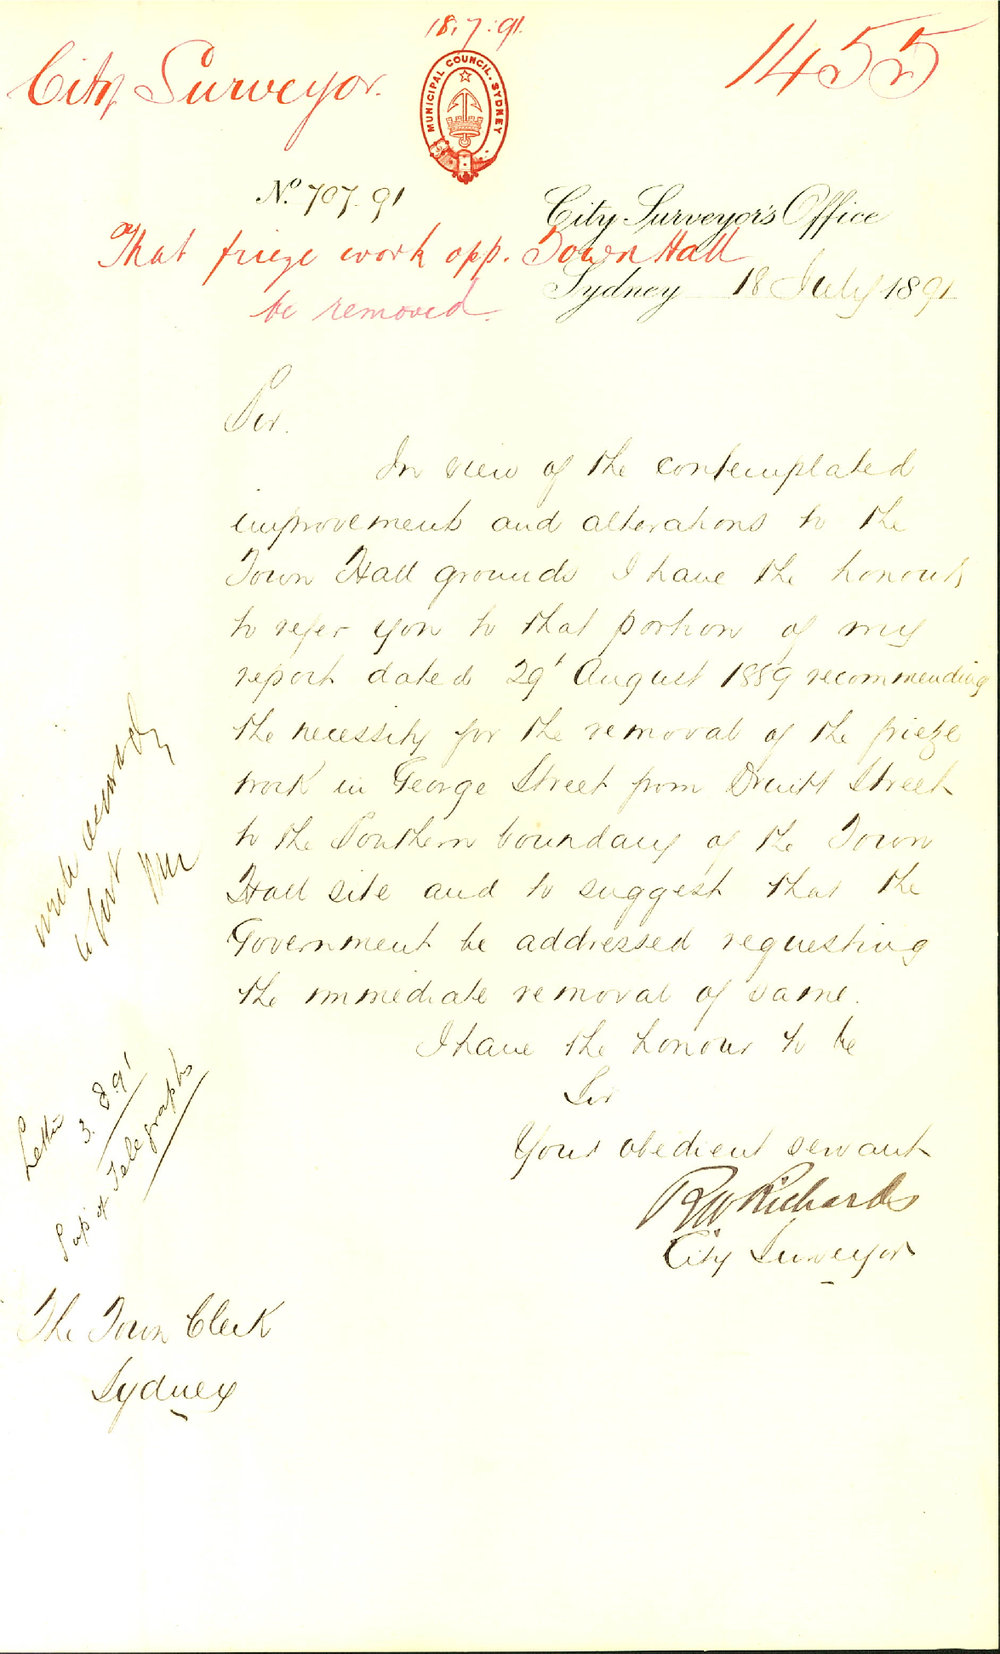 18.7.91.
City Surveyor.
1455
MUNICIPAL COUNCIL. SYDNEY
No. 707.91
City Surveyor's Office
That frieze work opp. Town Hall
be removed.
Sydney 18 July 1891
Sir.
In view of the contemplated
improvements and alterations to the
Town Hall grounds I have the honour
to refer you to that portion of my
report dated 29t August 1889 recommending
the necessity for the removal of the frieze
work in George Street from Druitt Street
to the Southern boundary of the Town
Hall site and to suggest that the
Government be addressed requesting
the immediate removal of same.
I have the honour to be
Sir
Your obedient servant
RW Richards
City Surveyor
write accordy
to Govt
Letter
3.8.91
Supt of Telegraphs
The Town Clerk
Sydney